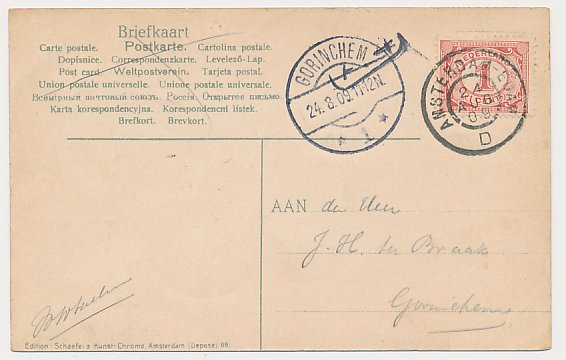 Briefkaart
Carte postale. Postkarte. Cartolina postale.
Dopisnice. Correspondenzkarte. Levelező-Lap.
Post card. Weltpostverein. Tarjeta postal.
Union postale universelle. Unione postale universale.
Всемірный почтовый союзъ. Россія. Открытое письмо.
Karta korespondencyjna. Korespondenční lístek.
Brefkort. Brevkort.
GORINCHEM
24.8.09.11-12N.
1
NEDERLAND
1
AMSTERDAM
D
AAN den Heer
J. H. ter Braak
Gorinchem
Edition: Schaefer's Kunst-Chromo, Amsterdam (Deposé) 09.